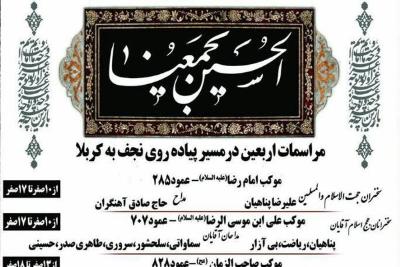 الحسین یجمعنا
مراسمات اربعین در مسیر پیاده روی نجف به کربلا
موکب امام رضا(علیه السلام)-عمود۲۸۵
از۱۰صفر تا ۱۷صفر
سخنران حجت الاسلام والمسلمین علیرضا پناهیان مداح حاج صادق آهنگران
موکب علی ابن موسی الرضا(علیه السلام)-عمود۷۰۷
از۱۰صفر تا ۱۷صفر
سخنرانان حجج اسلام آقایان پناهیان، ریاضت، بی آزار مداحان آقایان سماواتی، سلحشور، سروری، طاهری صدر، حسینی
موکب صاحب الزمان(عج)-عمود۸۲۸
از۱۳صفر تا ۱۸صفر